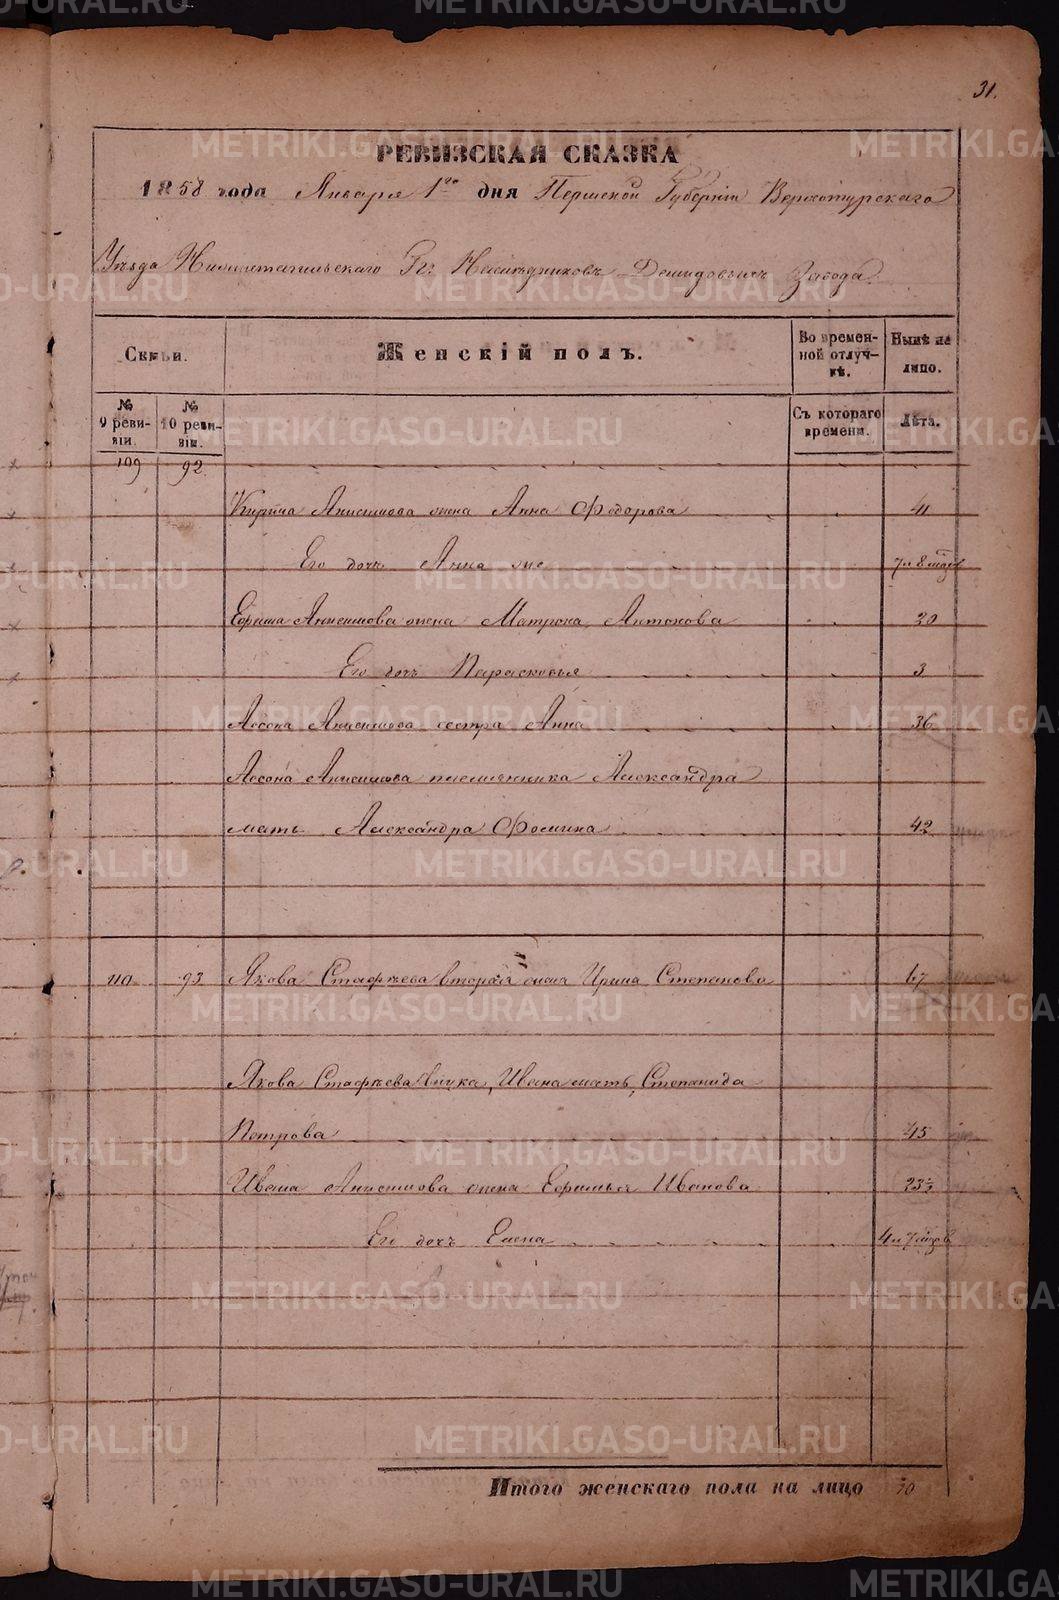 31.
РЕВИЗСКАЯ СКАЗКА
1858 года Января 1го дня Пермской Губерніи Верхотурскаго
Уѣзда Нижнетагильскаго Гг. Наслѣдниковъ Демидовыхъ Завода.
Семьи.
Женскій полъ.
Во временной отлучкѣ.
Нынѣ на лицо.
№ 9 ревизіи.
№ 10 ревизіи.
Съ котораго времени.
Лѣта.
109 92.
Анисимова жена Анна Федорова 41
Его дочь Анна 7 и 8
Ефима Анисимова жена Матрена Антонова 30
Его дочь Парасковья 3
Анисимова сестра Анна 36
Анисимова племянника Александра
мать Александра Фомина 42
110 93 Якова Стафѣева вторая жена Ирина Степанова 67
Якова Стафѣева внука, Ивана мать, Степанида
Петрова 45
Ивана Анисимова жена Ефимья Иванова 23½
Его дочь Елена 4 и 7
Итого женскаго пола на лицо 10
METRIKI.GASO-URAL.RU